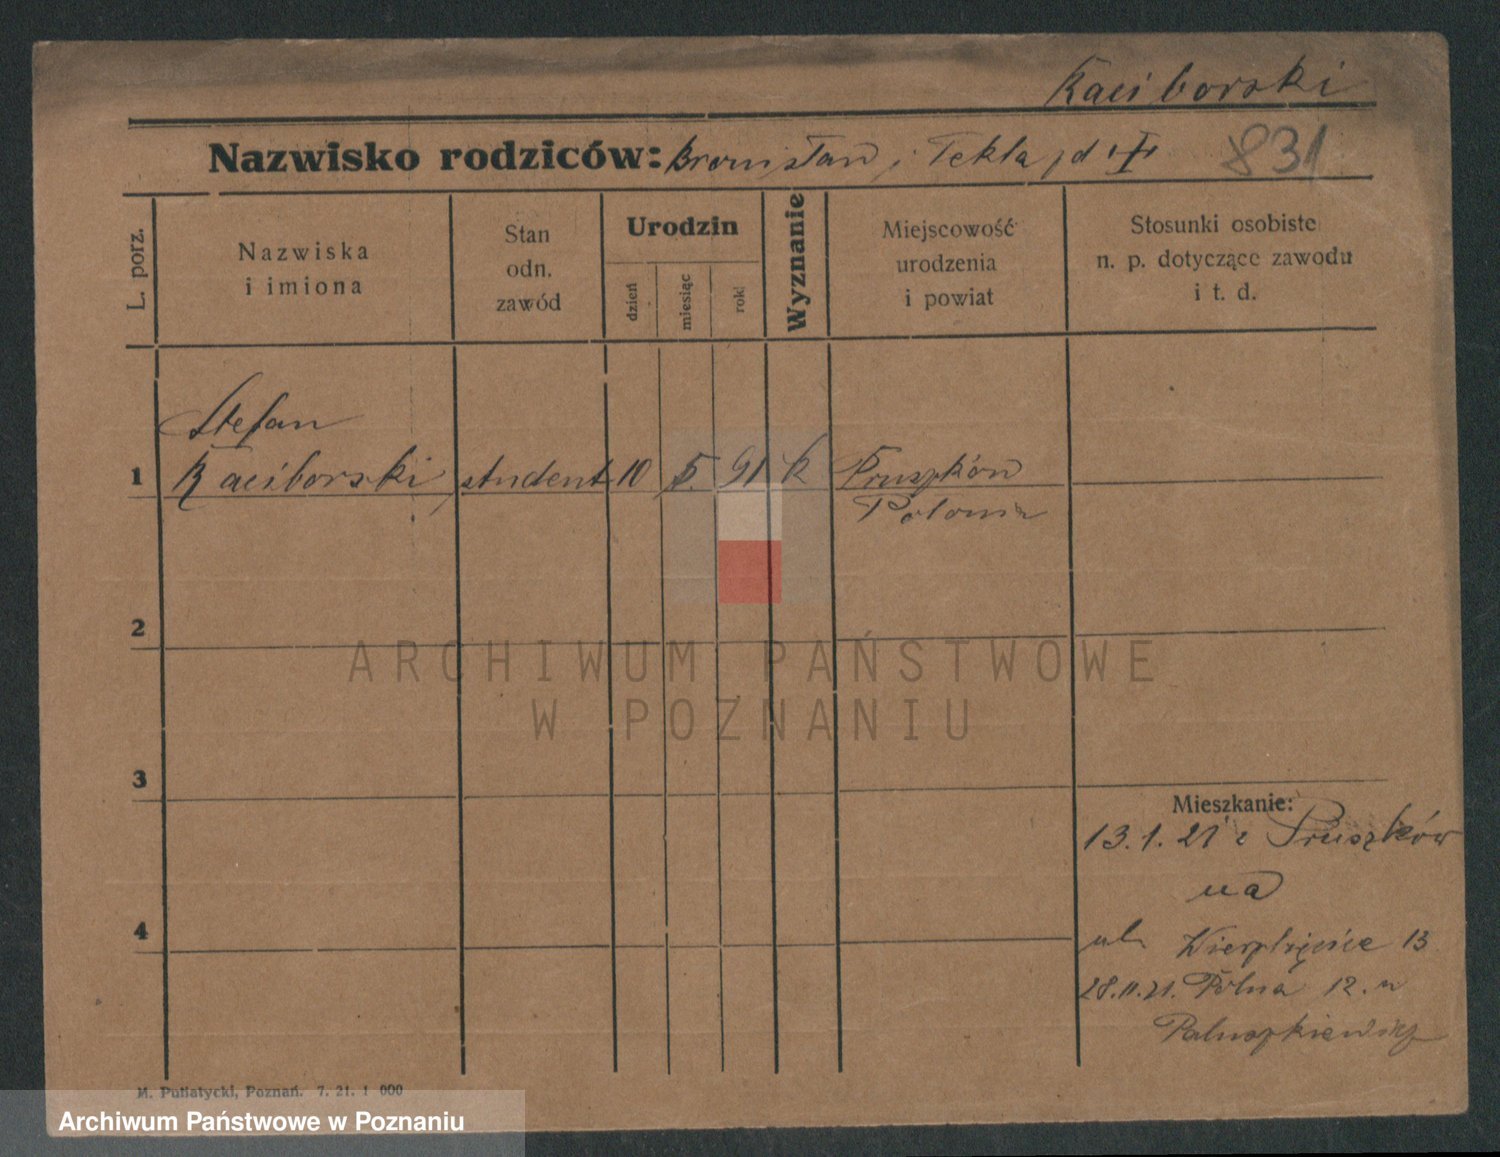 Raciborski
Nazwisko rodziców: Bronisław i Tekla, d
831
L. porz.
Nazwiska
i imiona
Stan
odn.
zawód
Urodzin
dzień
miesiąc
rok
Wyznanie
Miejscowość
urodzenia
i powiat
Stosunki osobiste
n. p. dotyczące zawodu
i t. d.
Stefan
1 Raciborski student 10 5. 91 k Pruszków
2
ARCHIWUM PAŃSTWOWE
W POZNANIU
3
Mieszkanie:
13.1.21 z Pruszków
na
4
ul. 13
28.11.21. Polna 12. u
M. Putiatycki, Poznań. 7. 21. 1 000
Archiwum Państwowe w Poznaniu